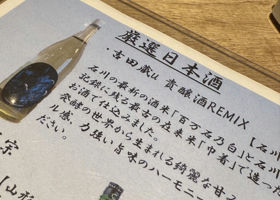 厳選日本酒
・吉田蔵u 貴醸酒REMIX 【石川
石川の最新の酒米「百万石乃白」と石川
記録に残る最古の在来米「巾着」で造っ
お酒で仕込みました。
発酵の世界から生まれる綺麗な甘み
ル感、力強い旨味のハーモニー
ださい。
宗
【山形